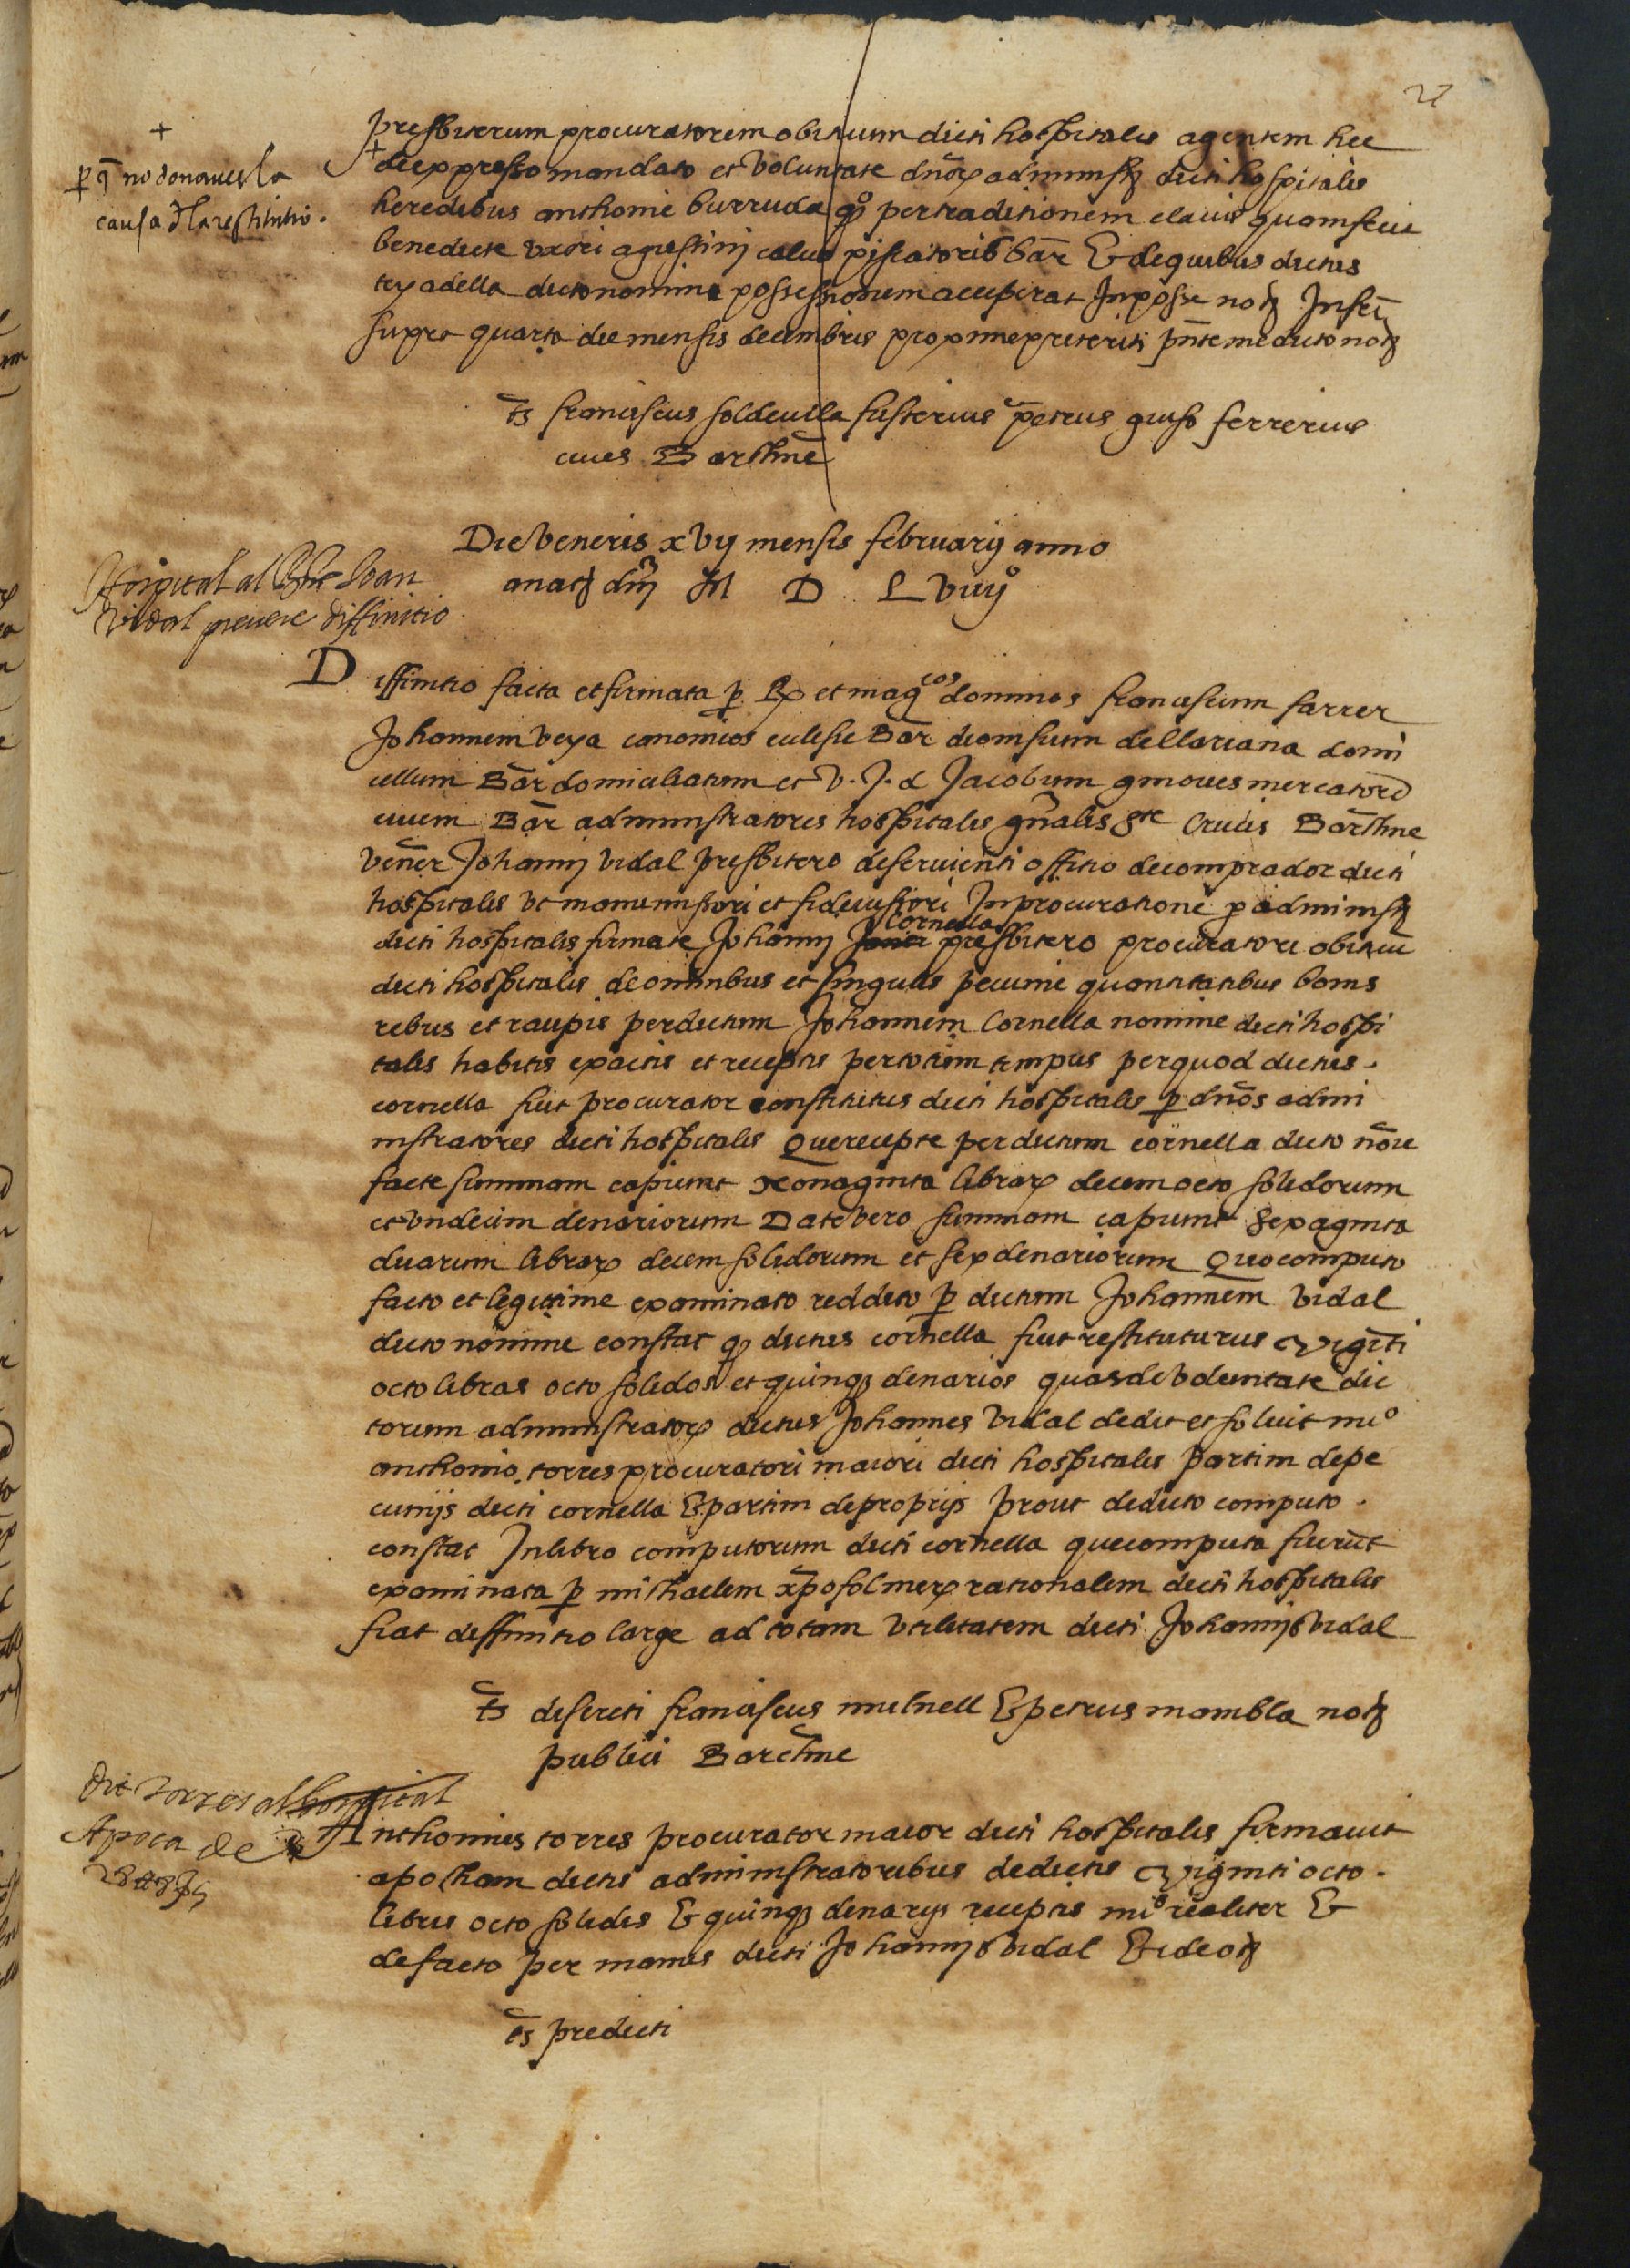 27
presbiterum procuratorem obituum dicti hospitalis agentem hec
+ de expresso mandato et voluntate dnōꝝ administꝝ dicti hospitalis
heredibus anthonie burruda qᵒ per traditionem clavis quam fecit
benedicte uxori agustinj calvo piscatoris bar̄ & de quibus dictus
texadella dicto nomine possessionem acceperat In posse notꝝ Infrī
supra quarta die mensis decembris proxime preteriti pn̄te me dicto notꝝ
+
ꝑ q̄ no donaves la
causa dla restitutio.
ts̄ franciscus soldevila fusterius petrus guiso ferrerius
cives Barchn̄e
Die Veneris xvij mensis februarij anno
a natꝝ dnj̄ M D L viiijᵒ
Hospital al Joan
Vidal prevere diffinitio
Diffinitio facta et firmata ꝑ Rx et magᶜᵒˢ dominos franciscum farrer
Johannem veya canonicos ecclesie Bar̄ dionisium de llariana domi
cellum Bar̄ domiciliatum et V. J. d Jacobum gmoves mercatorē
civem Bar̄ administratores hospitalis gn̄alis Ste Crucis Barchn̄e
vener̄ Johannj vidal presbitero deservienti offitio de comprador dicti
hospitalis ut manumissori et fideiussori In procuratione ꝑ administꝝ
dicti hospitalis firmate Johannj Cornella presbitero procuratori obituū
dicti hospitalis de omnibus et singulis pecunie quantitatibus bonis
rebus et raupis per dictum Johannem Cornella nomine dicti hospi
talis habitis exactis et receptis per totum tempus per quod dictus.
cornella fuit procurator constitutus dicti hospitalis ꝑ dn̄os admi
nistratores dicti hospitalis Que recepte per dictum cornella dicto nōie
facte summam capiunt xonaginta libraꝝ decem octo solidorum
et undecim denariorum Date vero summam capiunt sexaginta
duarum libraꝝ decem solidorum et sex denariorum Quo computo
facto et legittime examinato reddito ꝑ dictum Johannem vidal
dicto nomine constat qꝫ dictus cornella fuit restituturus vigiti
octo libras octo solidos et quinqꝫ denarios quas de voluntate dic
torum administratoꝝ dictus Johannes vidal dedit et soluit miᵒ
anthonio torres procuratori maiori dicti hospitalis partim de pe
cunijs dicti cornella & partim de proprijs prout de dicto computo.
constat In libro computorum dicti cornella que computa fuerūt
examinata ꝑ michaelem xp̄ofol merꝝ rationalem dicti hospitalis
fiat diffinitio large ad totam utilitatem dicti Johannis vidal
ts̄ discreti franciscus mulnell & petrus mambla notꝝ
publici Barchn̄e
dit torres al hospital
Apoca de
28 ₶ 8 ß 5
Anthonius torres procurator maior dicti hospitalis firmavit
apocham dictis administratoribus de dictis viginti octo.
libris octo solidis & quinqꝫ denarijs receptis miᵒ realiter &
de facto per manus dicti Johannis vidal Et ideo ꝝ
ts̄ predicti